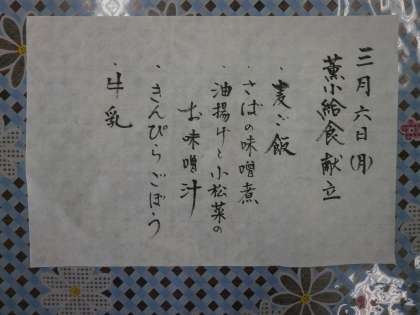 三月六日(月)
薫小給食献立
・麦ご飯
・さばの味噌煮
・油揚げと小松菜の
お味噌汁
・きんぴらごぼう
・牛乳